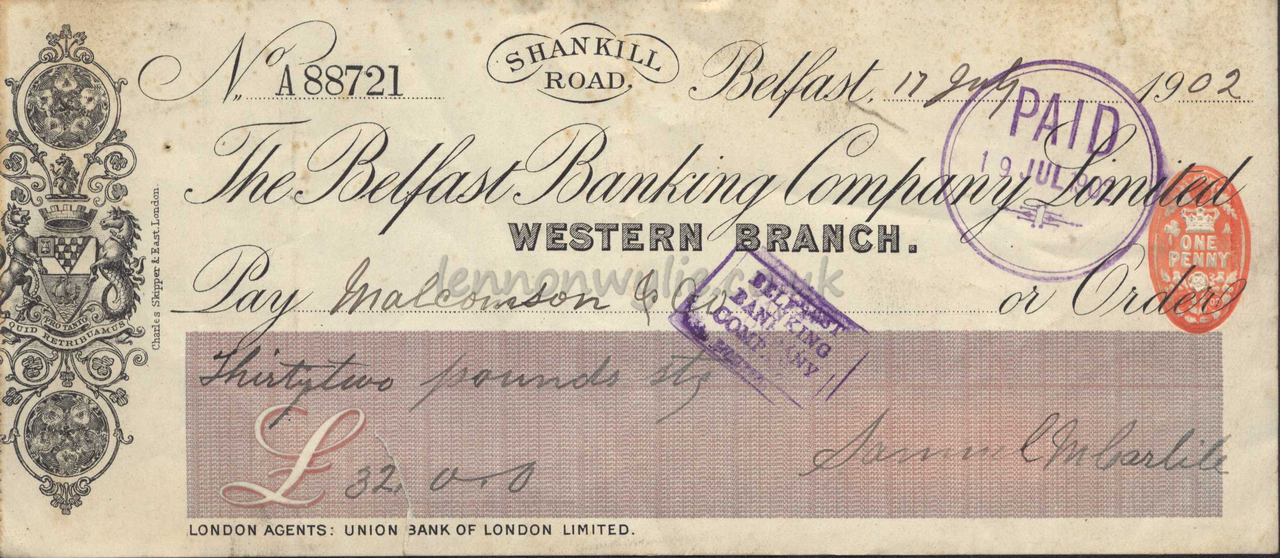 SHANKILL
ROAD.
No. A 88721
Belfast, 17 July 1902
PAID
19 JUL 1902
The Belfast Banking Company Limited
WESTERN BRANCH.
ONE
PENNY
lennonwylie.co.uk
Pay Malcomson & Co or Order
BELFAST
BANKING
COMPANY
PRO TANTO
QUID RETRIBUAMUS
Charles Skipper & East. London.
Thirtytwo pounds stg
£ 32. 0.0
Samuel McCarlile
LONDON AGENTS: UNION BANK OF LONDON LIMITED.